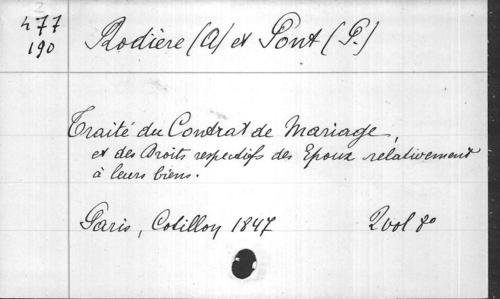 477
190
Rodière (A) et Pont (P.)
Traité du Contrat de Mariage,
et des Droits respectifs des Epoux relativement
à leurs biens.
Paris, Cotillon 1847 2 vol 8º